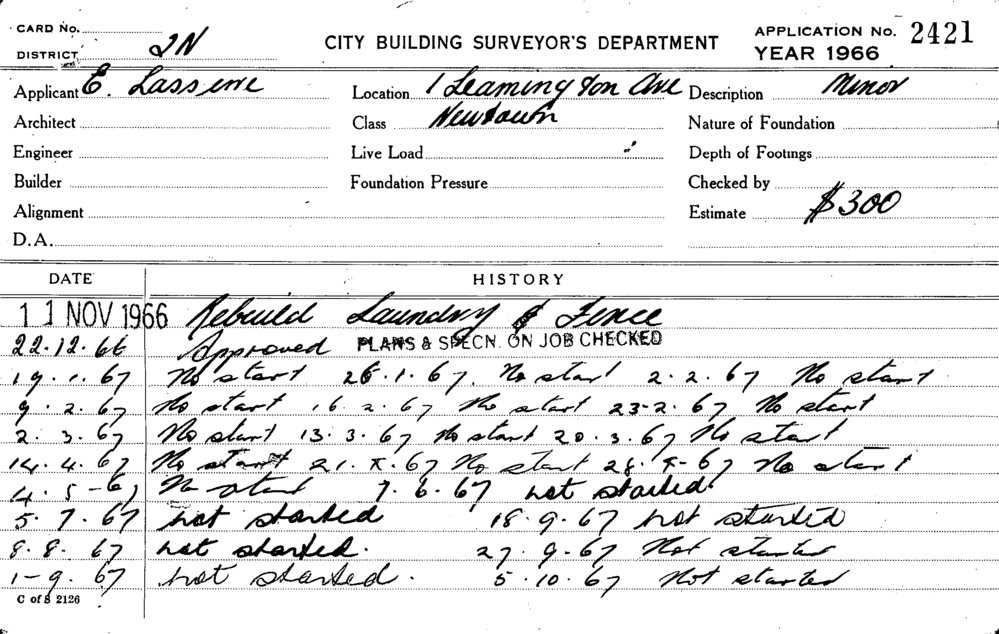 CARD No.
DISTRICT 2N
CITY BUILDING SURVEYOR'S DEPARTMENT
APPLICATION No. 2421
YEAR 1966
Applicant E. Lasserre
Location 1 Leamington Ave
Newtown
Description Minor
Architect
Class
Nature of Foundation
Engineer
Live Load
Depth of Footings
Builder
Foundation Pressure
Checked by
Alignment
Estimate $300
D.A.
DATE HISTORY
11 NOV 1966 Rebuild Laundry & Fence
22.12.66 Approved PLANS & SPECN. ON JOB CHECKED
19.1.67 No start 26.1.67. No start 2.2.67 No start
9.2.67 No start 16.2.67 No start 23-2.67 No start
2.3.67 No start 13.3.67 No start 20.3.67 No start
14.4.67 No start 21.4.67 No start 28.4-67 No start
4.5-67 No start 7.6.67 not started
5.7.67 not started 18.9.67 not started
8.8.67 not started. 27.9.67 Not started
1-9.67 not started. 5.10.67 Not started
C of S 2126